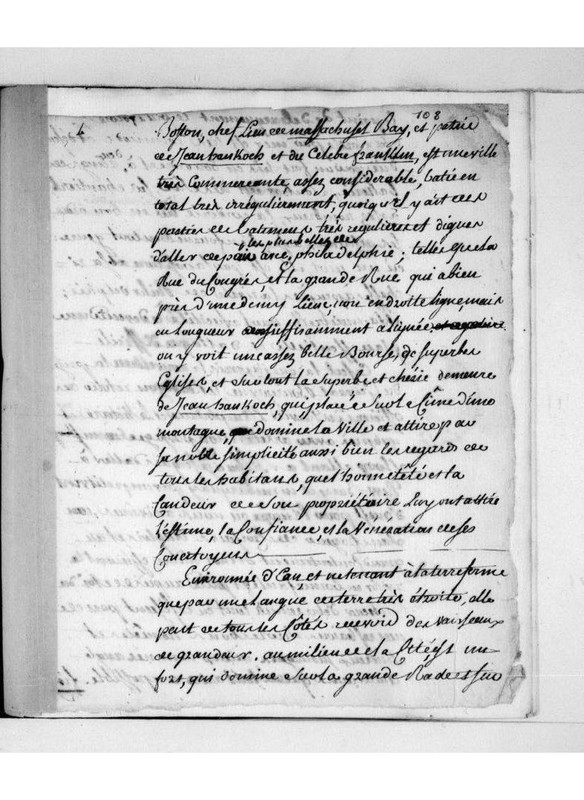 108
Boston, chef Lieu de massachuset Bay, et patrie
de Jean hankoch et du Celebre franklin, est une ville
très Commercante, assez considerable, batie en
total très irrégulierement, quoiqu'il y ait des
parties de batimens très regulieres et dignes
d'aller de pair avec les plus belles de philadelphie; telles que la
Rue du Congrès et la grande Rue qui a bien
près d'une demy Lieue, non en droite ligne, mais
en Longueur suffisamment alignée
on y voit une assez belle Bourse, de superbes
Eglises, et surtout la superbe et chérie demeure
de Jean hankoch, qui placée sur la Cime d'une
montagne, domine la ville et attire par
sa noble simplicité aussi bien les regards de
tous les habitans, que l'honnêteté et la
Candeur de son propriétaire Luy ont attiré
L'estime, la Confiance, et la Vénération de ses
Concitoyens
Environnée d'Eau, et ne tenant à la terre ferme
que par une langue de terre très étroite, elle
peut de tous les Côtés recevoir des vaisseaux
de grandeur. au milieu de la Cité est un
fort, qui domine sur la grande Rade et sur